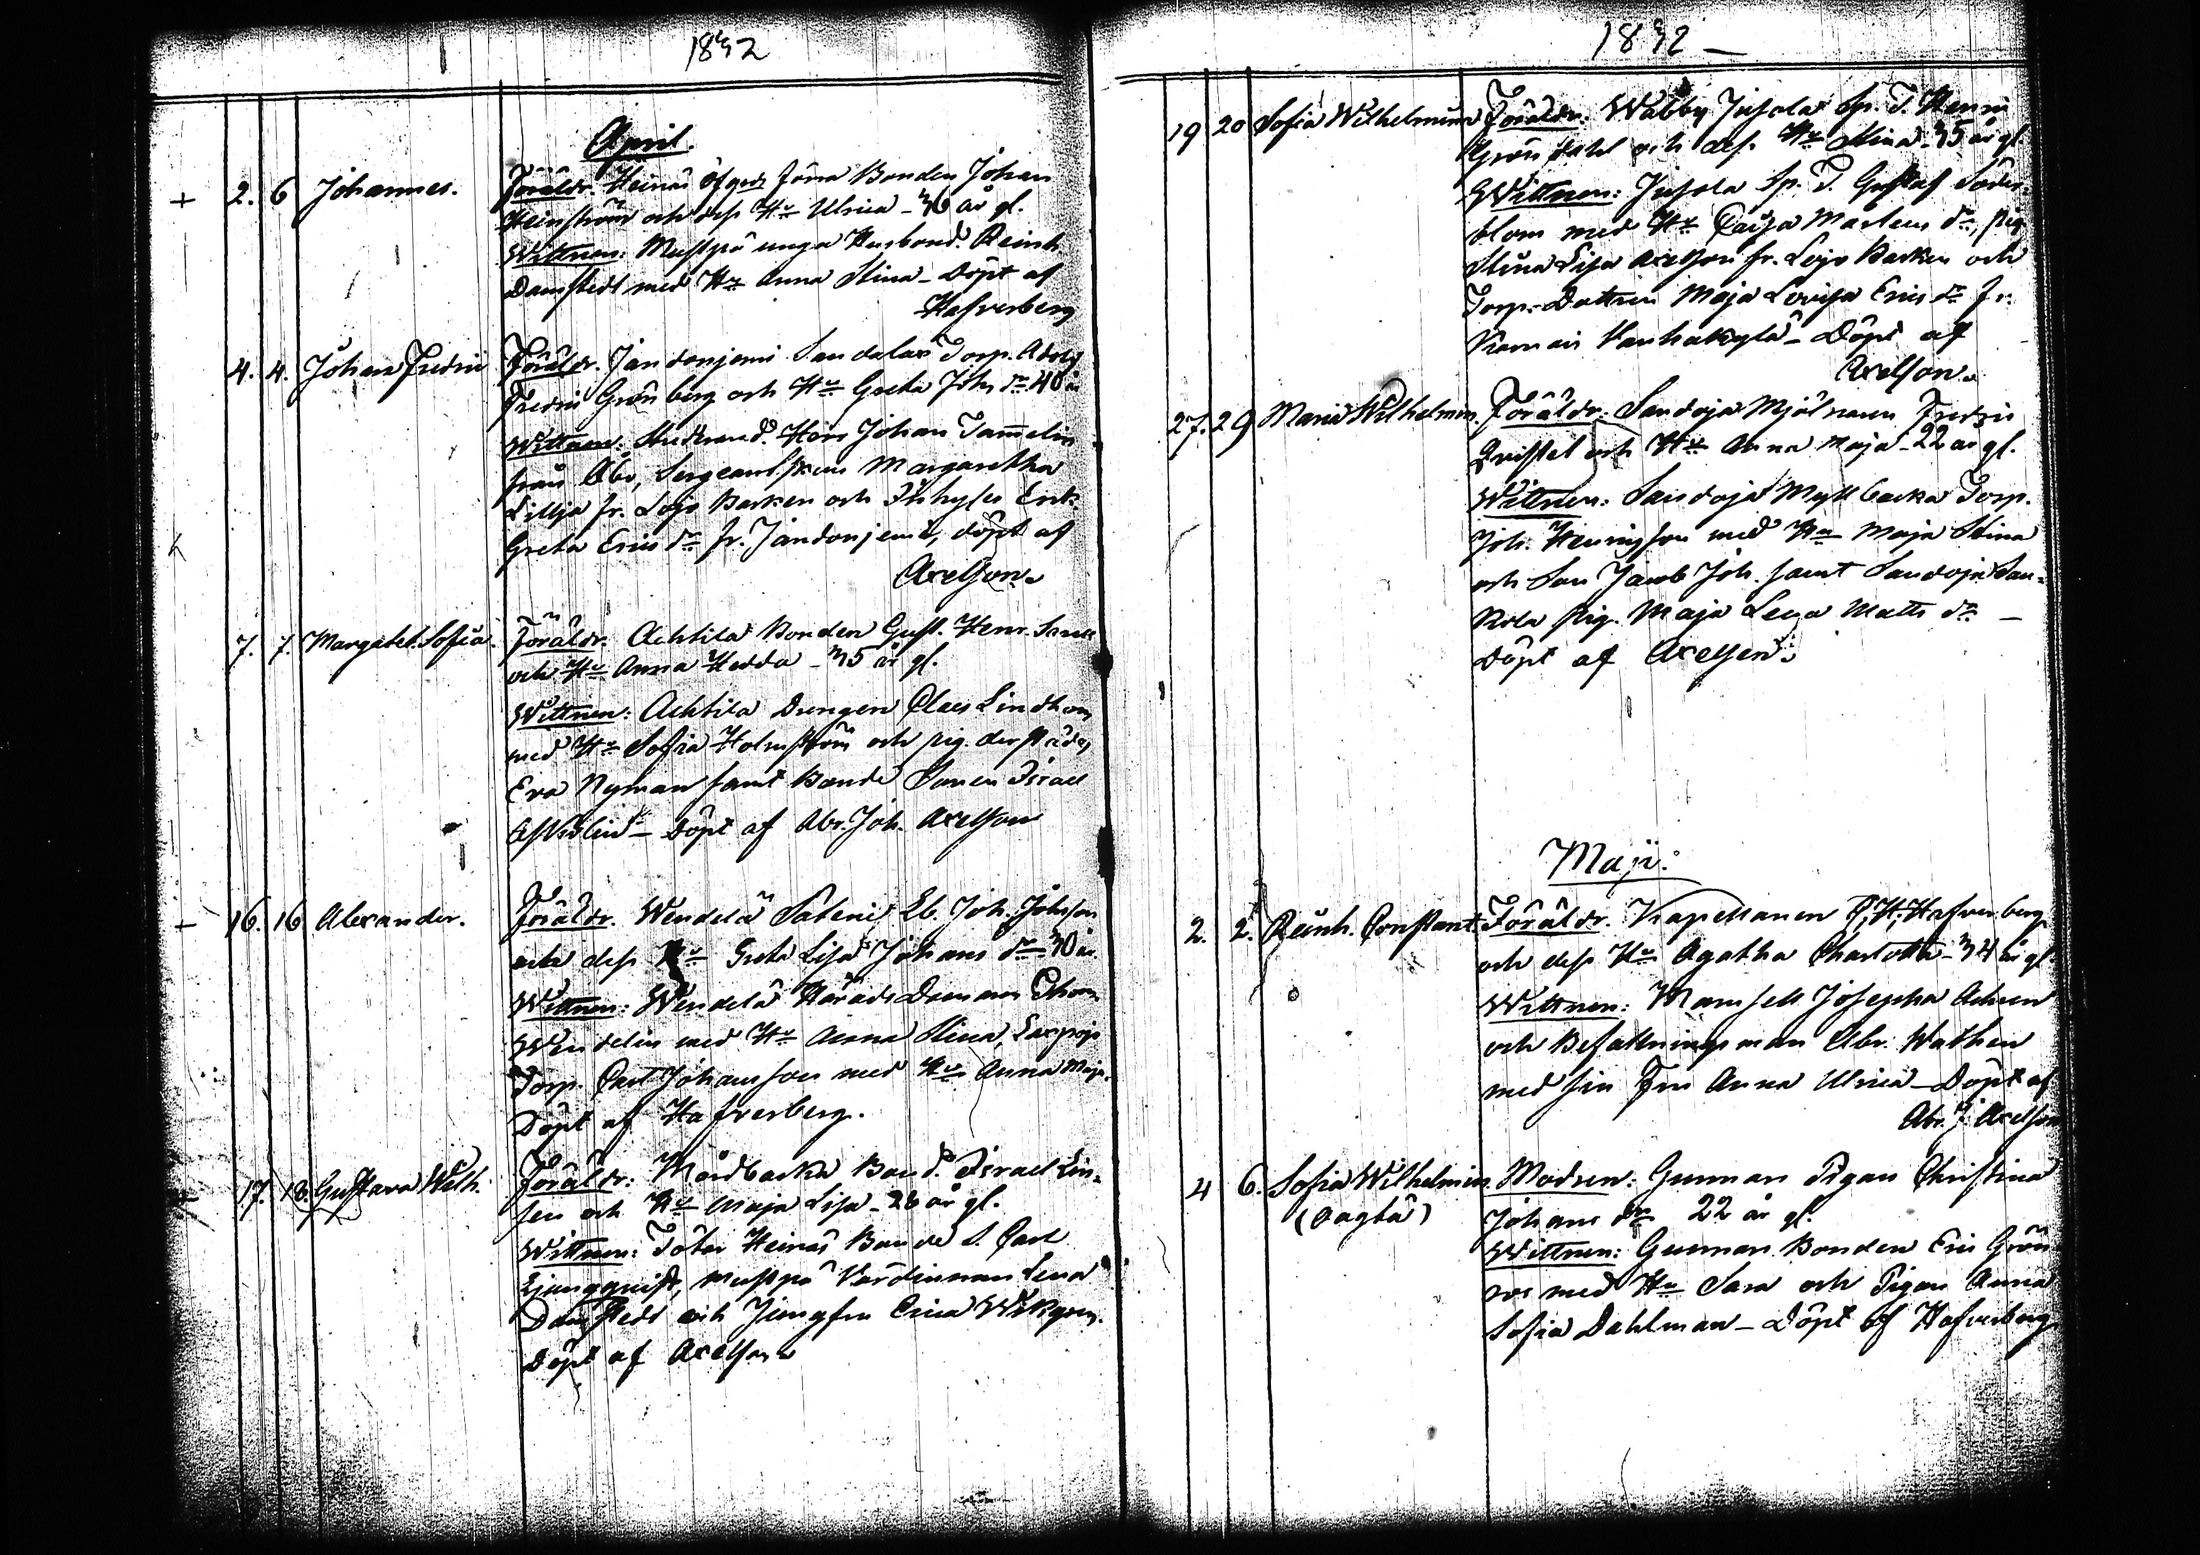 1832
April.
+ 2. 6 Johannes. Föräldr. Heinäs Bonden Johan
och dess Hu Ulrica - 36 år gl.
Wittnen: unga Husbond. Reinh.
Damstedt med Hu Anna Stina - Döpt af
Hafverberg
4. 4. Johan Fredric Föräldr. Jandonjemi Sandalax Torp. Adolf
Fredric Grönberg och Hu Greta Joh. dr 40 år
Wittnen: Johan Tammelin
från Åbo, Margaretha
Lillja fr. Lojo Kyrka och Enk.
Greta Erics dr fr. Jandonjemi, döpt af
Axelson.
7. 7. Margaret. Sofia. Föräldr. Achtila Bonden Gust. Henr.
och Hu Anna Hedda - 35 år gl.
Wittnen: Achtila Drengen Claes Lindhom
med Hu Sofia Holmström och pig. derstädes
Eva Nyman samt Bonde Sonen Israel
- Döpt af Abr. Joh. Axelson
+ 16. 16 Alexander. Föräldr. Wendelä Joh. Johsson
och dess Hu Greta Lisa Johans dr - 30 år
Wittnen: Wendelä Härads Domaren Thom.
Wendelin med Hu Anna Stina,
Torp. Carl Johansson med Hu Anna Maja.
Döpt af Hafverberg.
17. 18. Gustava Wilh. Föräldr: Mårdbacka Bond. Israel
och Hu Maja Lisa - 26 år gl.
Wittnen: Heinäs Bonde S. Carl
Ljungquist, Värdinnan Lena
Damstedt och Jungfru Wikgren.
Döpt af Axelson
1832
19 20 Sofia Wilhelmina Föräldr: Wabby Jussola Sp. T. Henric
Gröndahl och dess Hu Stina - 35 år gl.
Wittnen: Jussola Sp. T. Gustaf Söder-
blom med Hu Caisa Martens dr, pig.
Stina Lisa Axelson fr. Lojo och
Torp. Dottren Maja Lovisa Erics dr fr.
Vanhakylä - Döpt af
Axelson.
27. 29 Maria Wilhelmin. Föräldr: Sandoja Mjölnaren Fredric
Qvistel och Hu Anna Maja - 22 år gl.
Wittnen: Sandoja Myllbacka Torp.
Joh. Henricsson med Hu Maja Stina
och Son Jacob Joh. samt Sandoja
pig. Maja Lena Matts dr -
Döpt af Axelson.
Maji.
2. 2. Reinh. Constant. Föräldr. Kapellanen C. H. Hafverberg
och dess Hu Agatha Charlotta - 34 år gl.
Wittnen: Mamsell Josepha Achren
och Befallningsman Abr. Wathen
med sin Fru Anna Ulrica - Döpt af
Abr. J. Axelson
4 6. Sofia Wilhelmin. Modren: Gunnars Pigan Christina
(Oagta) Johans dr 22 år gl.
Wittnen: Gunnars Bonden Eric Grön-
roos med Hu Sara och Pigan Anna
Sofia Dahlman - Döpt af Hafverberg